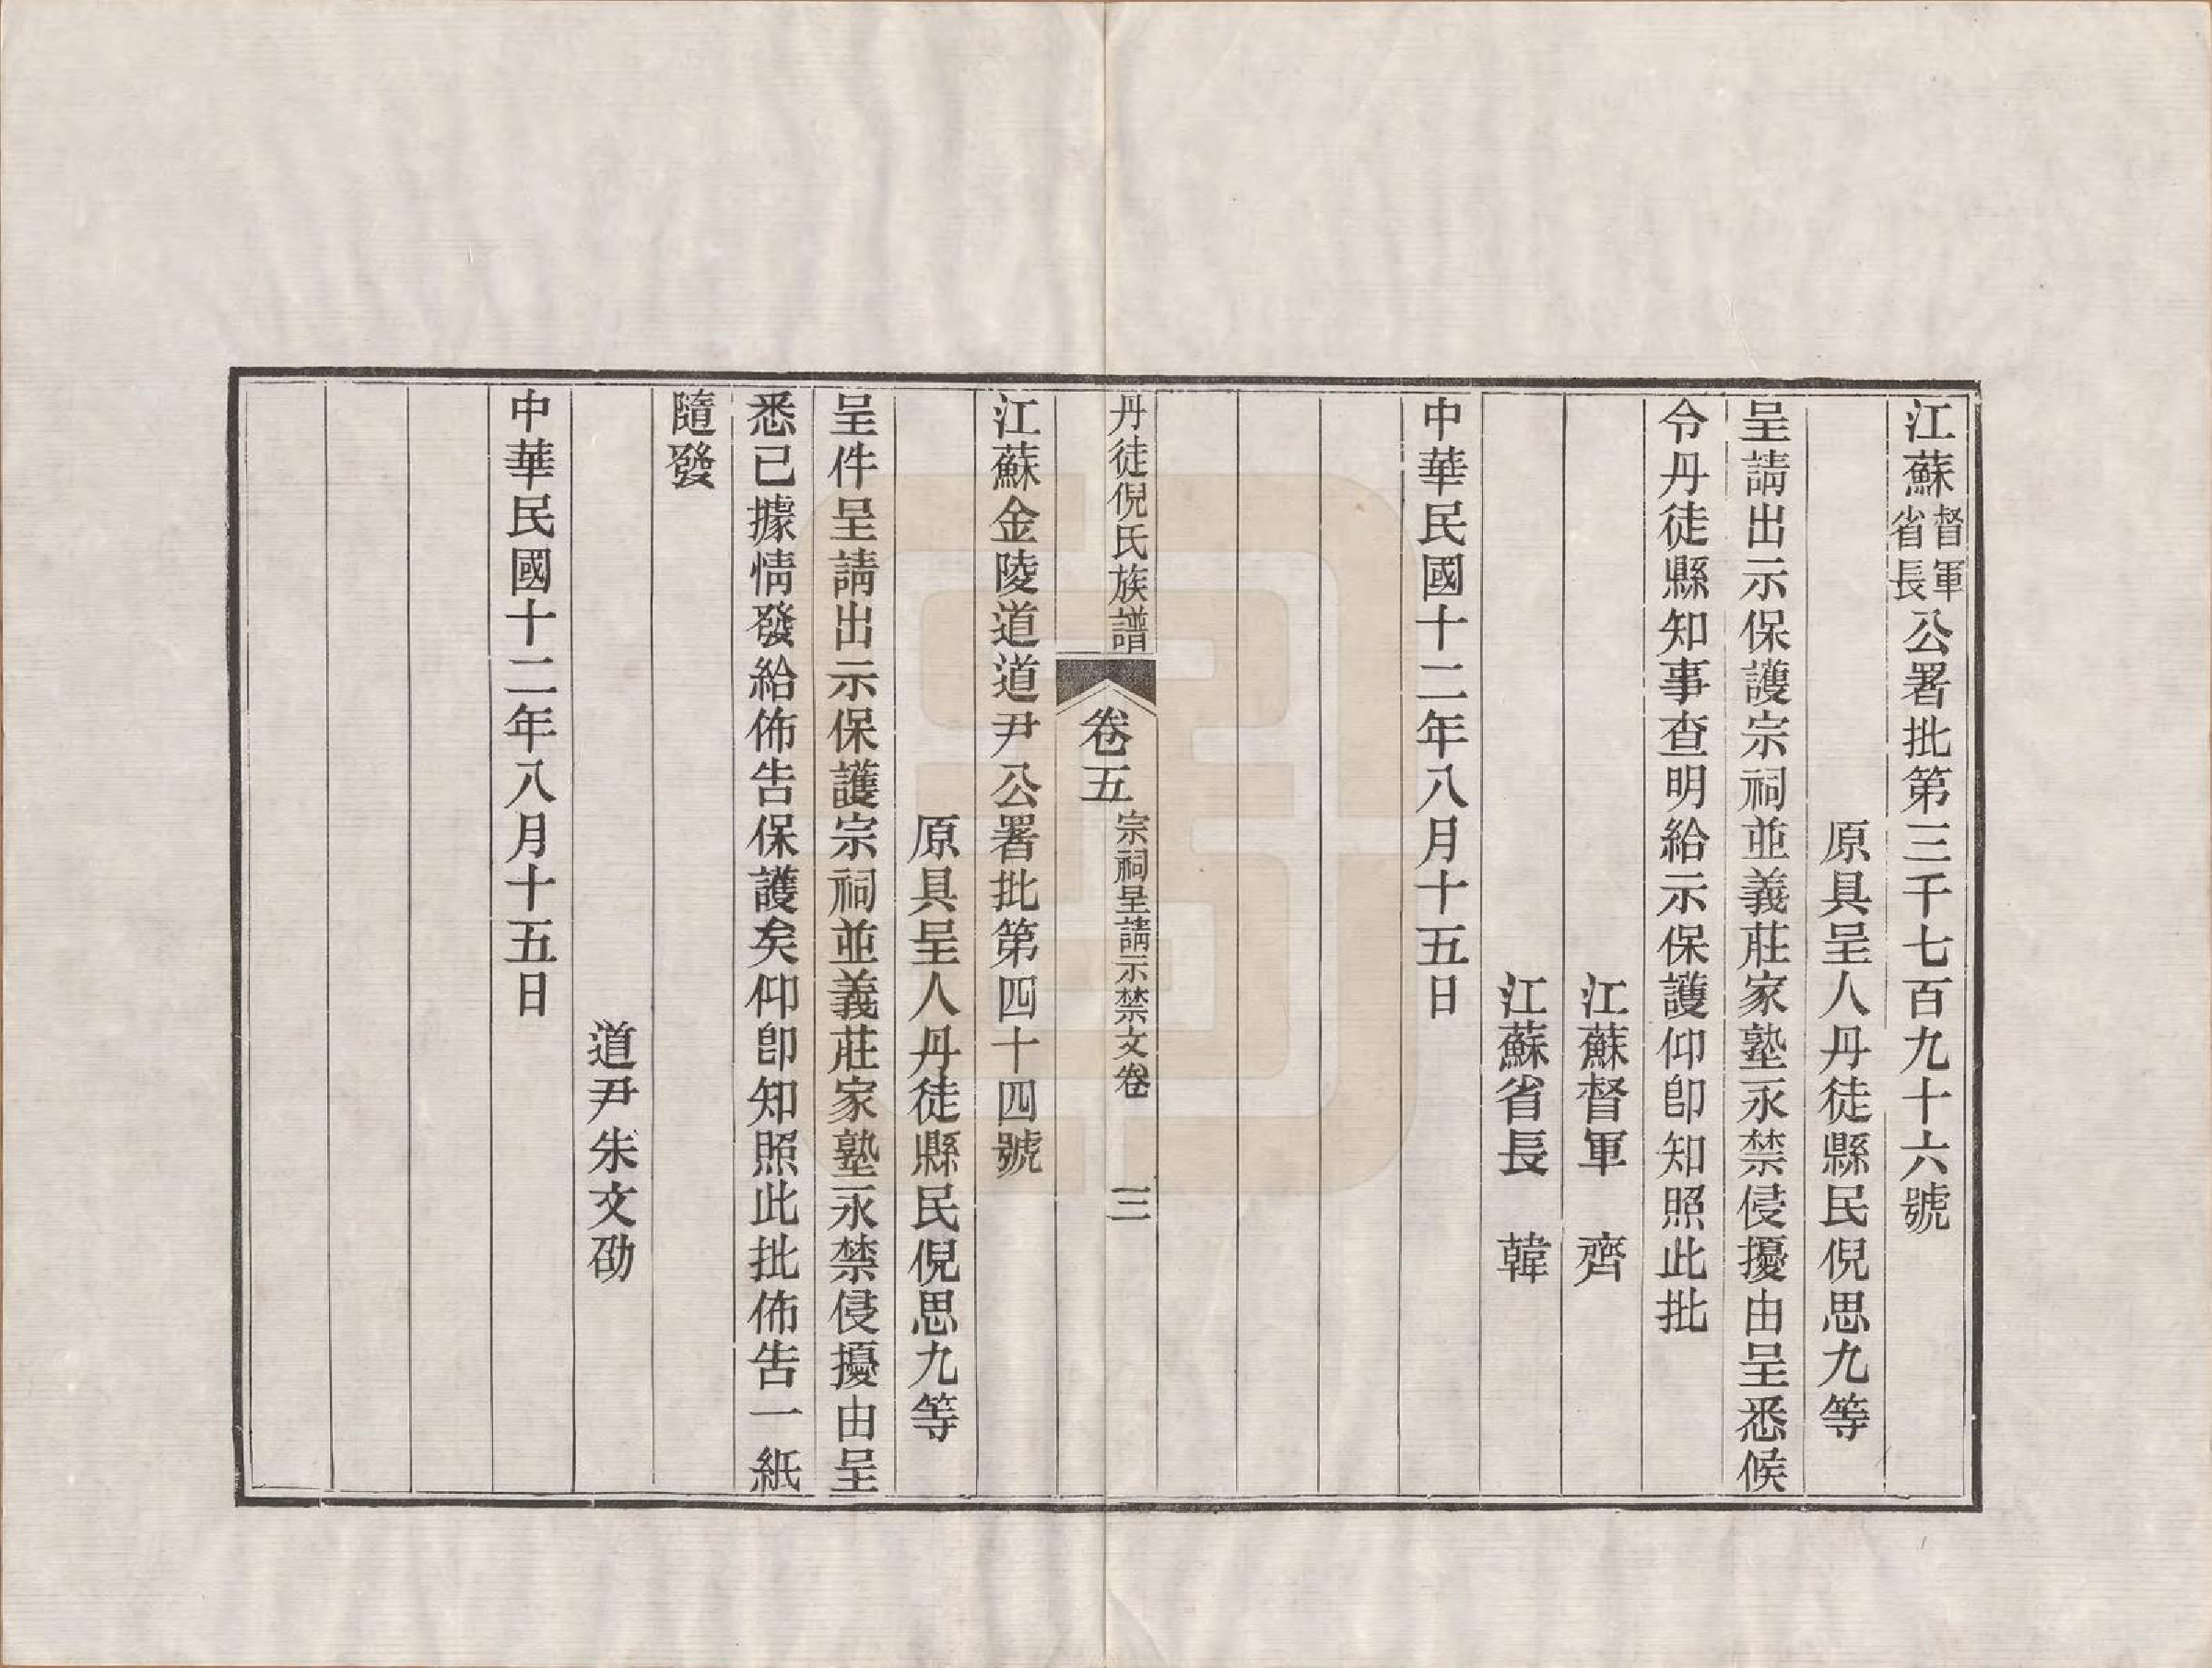 江蘇督軍省長公署批第三千七百九十六號
原具呈人丹徒縣民倪思九等
呈請出示保護宗祠並義莊家塾永禁侵擾由呈悉候
令丹徒縣知事查明給示保護仰卽知照此批
江蘇督軍　齊
江蘇省長　韓
中華民國十二年八月十五日
丹徒倪氏族譜
卷五
宗祠呈請示禁文卷
三
江蘇金陵道道尹公署批第四十四號
原具呈人丹徒縣民倪思九等
呈件呈請出示保護宗祠並義莊家塾永禁侵擾由呈
悉已據情發給佈告保護矣仰卽知照此批佈告一紙
隨發
道尹朱文劭
中華民國十二年八月十五日